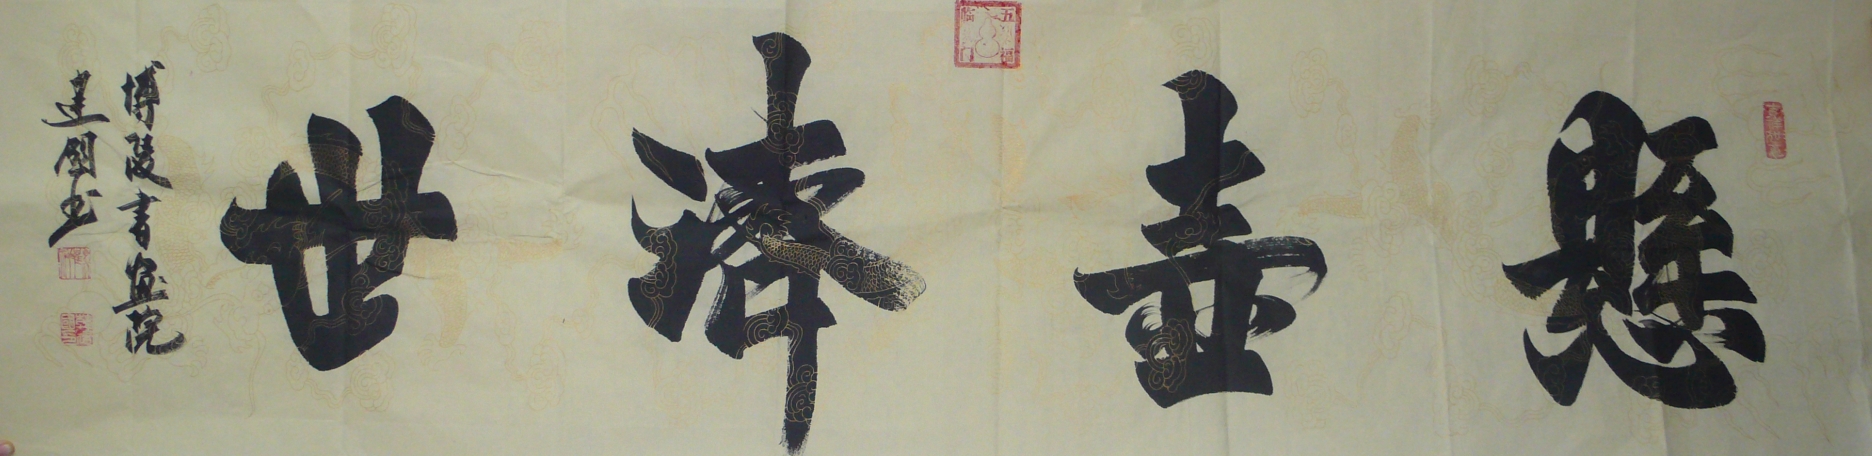 懸壺濟世
博陵書畫院
建國書